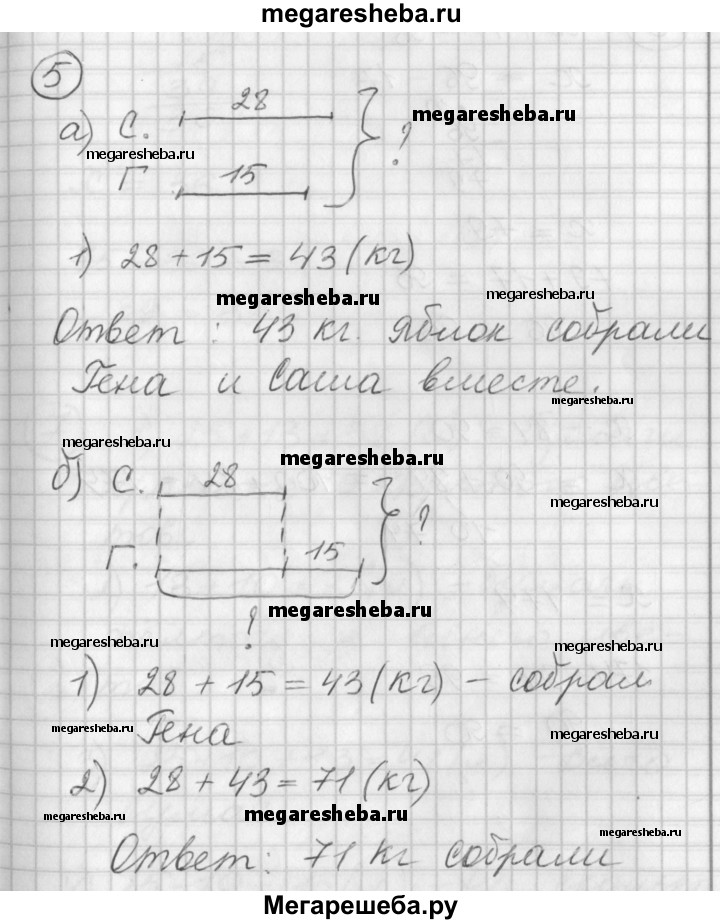 megaresheba.ru
5
28
а) С. megaresheba.ru
megaresheba.ru ?
Г 15
1) 28 + 15 = 43 (кг)
megaresheba.ru megaresheba.ru
Ответ : 43 кг. яблок собрали
Гена и Саша вместе.
megaresheba.ru
megaresheba.ru
megaresheba.ru
б) С. 28
megaresheba.ru
?
Г. 15
megaresheba.ru
?
megaresheba.ru megaresheba.ru
1) 28 + 15 = 43 (кг) – собрал
megaresheba.ru Гена megaresheba.ru
2) 28 + 43 = 71 (кг)
megaresheba.ru megaresheba.ru
megaresheba.ru
Ответ: 71 кг собрали
Мегарешеба.ру